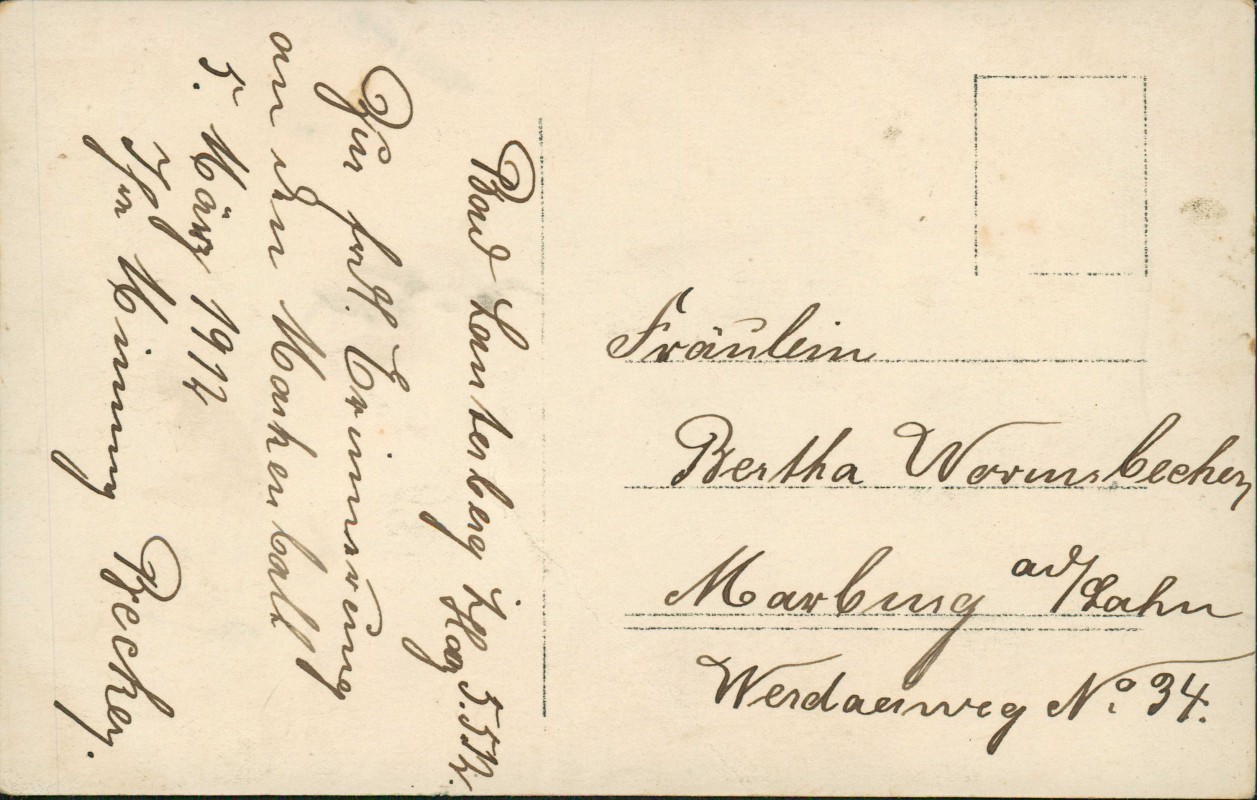 Bad Lauterberg i/Harz 5.5.12.
Zur frdl. Erinnerung
an den Maskenball
5. März 1912
Ihr Minning Becker.
Fräulein
Bertha Wormsbecher
Marburg a/d Lahn
Werdaerweg No. 34.